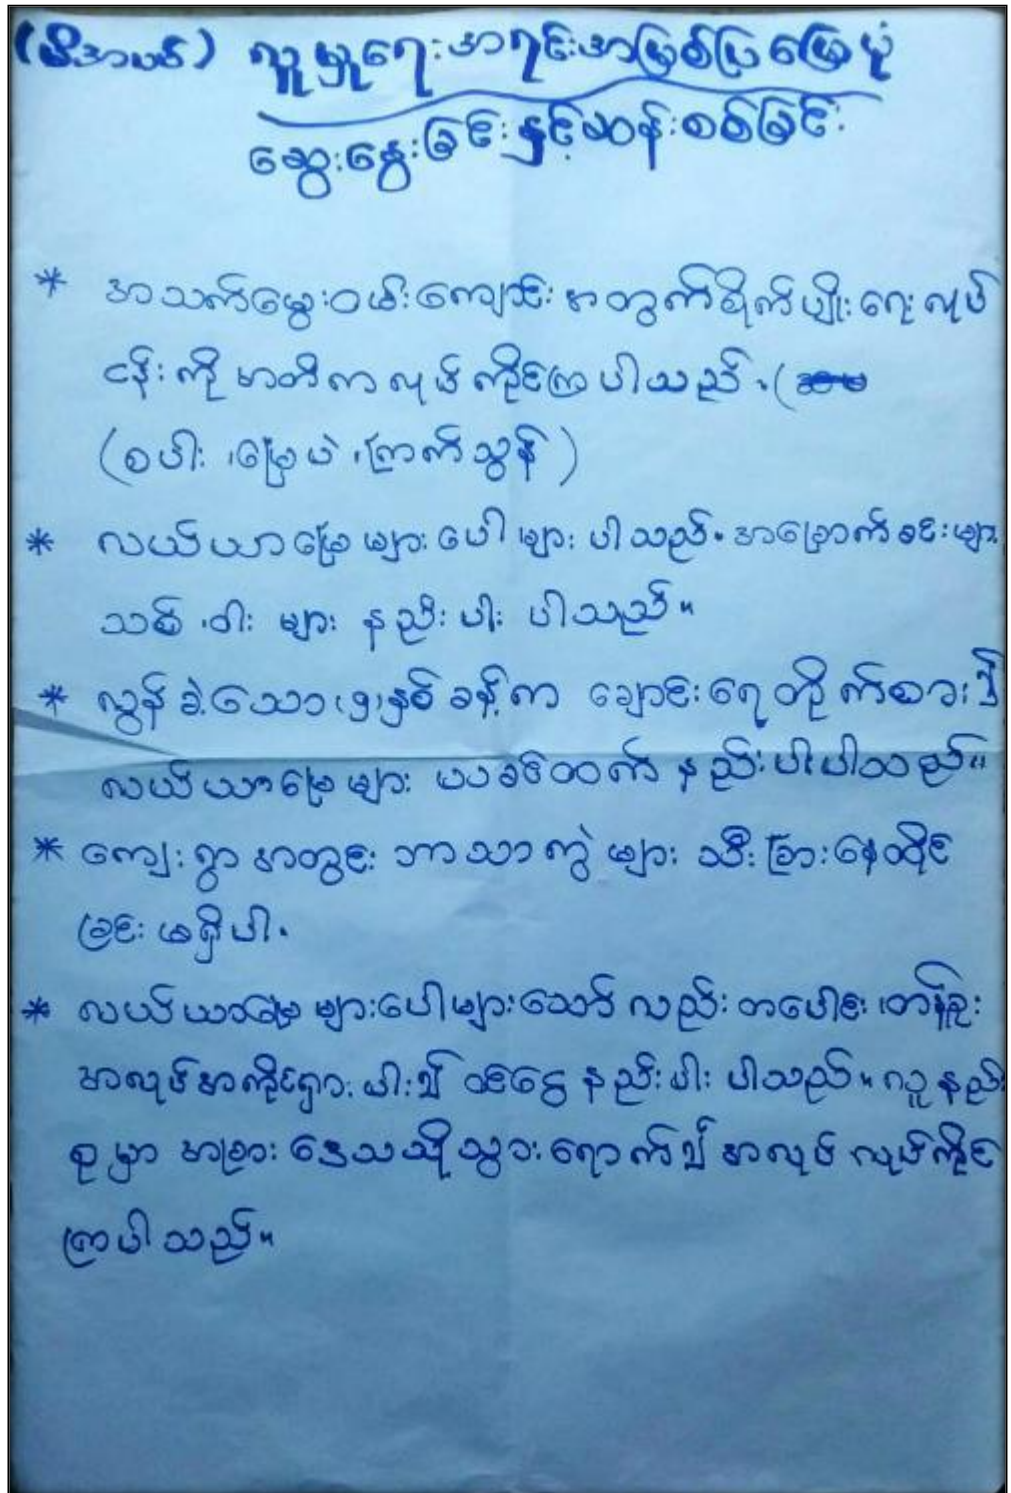 (စီအာပတ်) လူမှုရေးအရင်းအမြစ်ပြမြေပုံ
ဆွေးနွေးခြင်းနှင့်ဆန်းစစ်ခြင်း
* အသက်မွေးဝမ်းကျောင်းအတွက်စိုက်ပျိုးရေးလုပ်
ငန်းကိုအဓိကလုပ်ကိုင်ကြပါသည်.(
(စပါး၊မြေပဲ၊ကြက်သွန်)
* လယ်ယာမြေများပေါများပါသည်.အခြောက်ခင်းများ
သစ်၊ဝါးများနည်းပါးပါသည်။
* လွန်ခဲ့သော(၅)နှစ်ခန့်ကချောင်းရေတိုက်စား၍
လယ်ယာမြေများယခင်ထက်နည်းပါးပါသည်။
* ကျေးရွာအတွင်းဘာသာကွဲများသီးခြားနေထိုင်
ခြင်းမရှိပါ.
* လယ်ယာမြေများပေါများသော်လည်းတပေါင်း၊တန်ခူး
အလုပ်အကိုင်ရှားပါး၍ဝင်ငွေနည်းပါးပါသည်။လူနည်း
စုမှာအခြားဒေသသို့သွားရောက်၍အလုပ်လုပ်ကိုင်
ကြပါသည်။